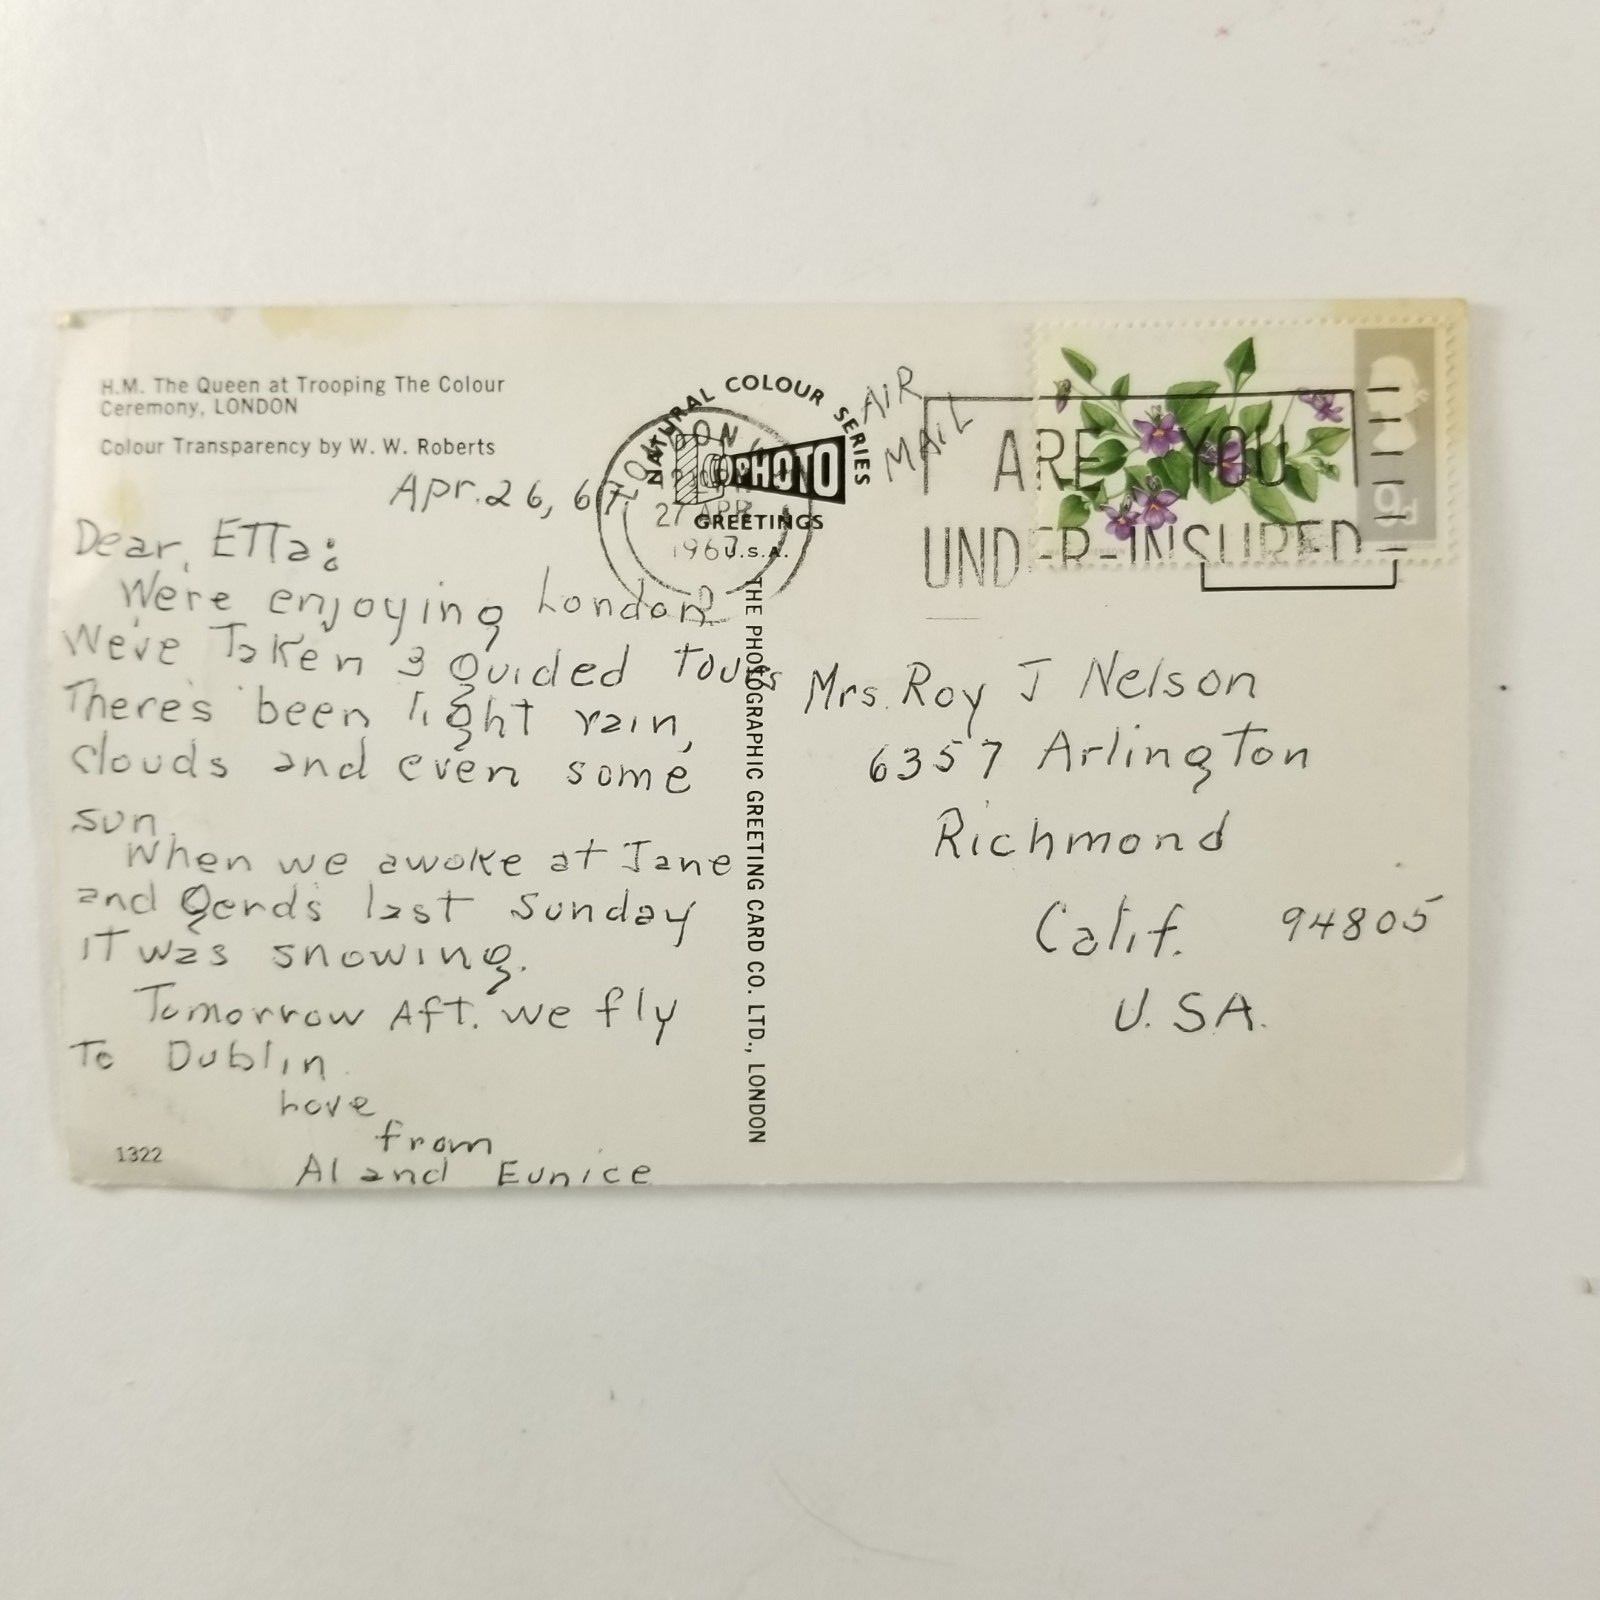 H.M. The Queen at Trooping The Colour
Ceremony, LONDON
Colour Transparency by W. W. Roberts
Apr. 26, 67
Dear, Etta:
We're enjoying London
We've Taken 3 guided tours
There's been light rain,
clouds and even some
sun.
When we awoke at Jane
and Gerds last Sunday
it was snowing.
Tomorrow Aft. we fly
To Dublin.
Love
from
Al and Eunice
1322
NATURAL COLOUR SERIES
PHOTO
GREETINGS
U.S.A.
LONDON
27 APR
1967
THE PHOTOGRAPHIC GREETING CARD CO. LTD., LONDON
AIR
MAIL
ARE YOU
UNDER-INSURED
Mrs. Roy J Nelson
6357 Arlington
Richmond
Calif. 94805
U.S.A.